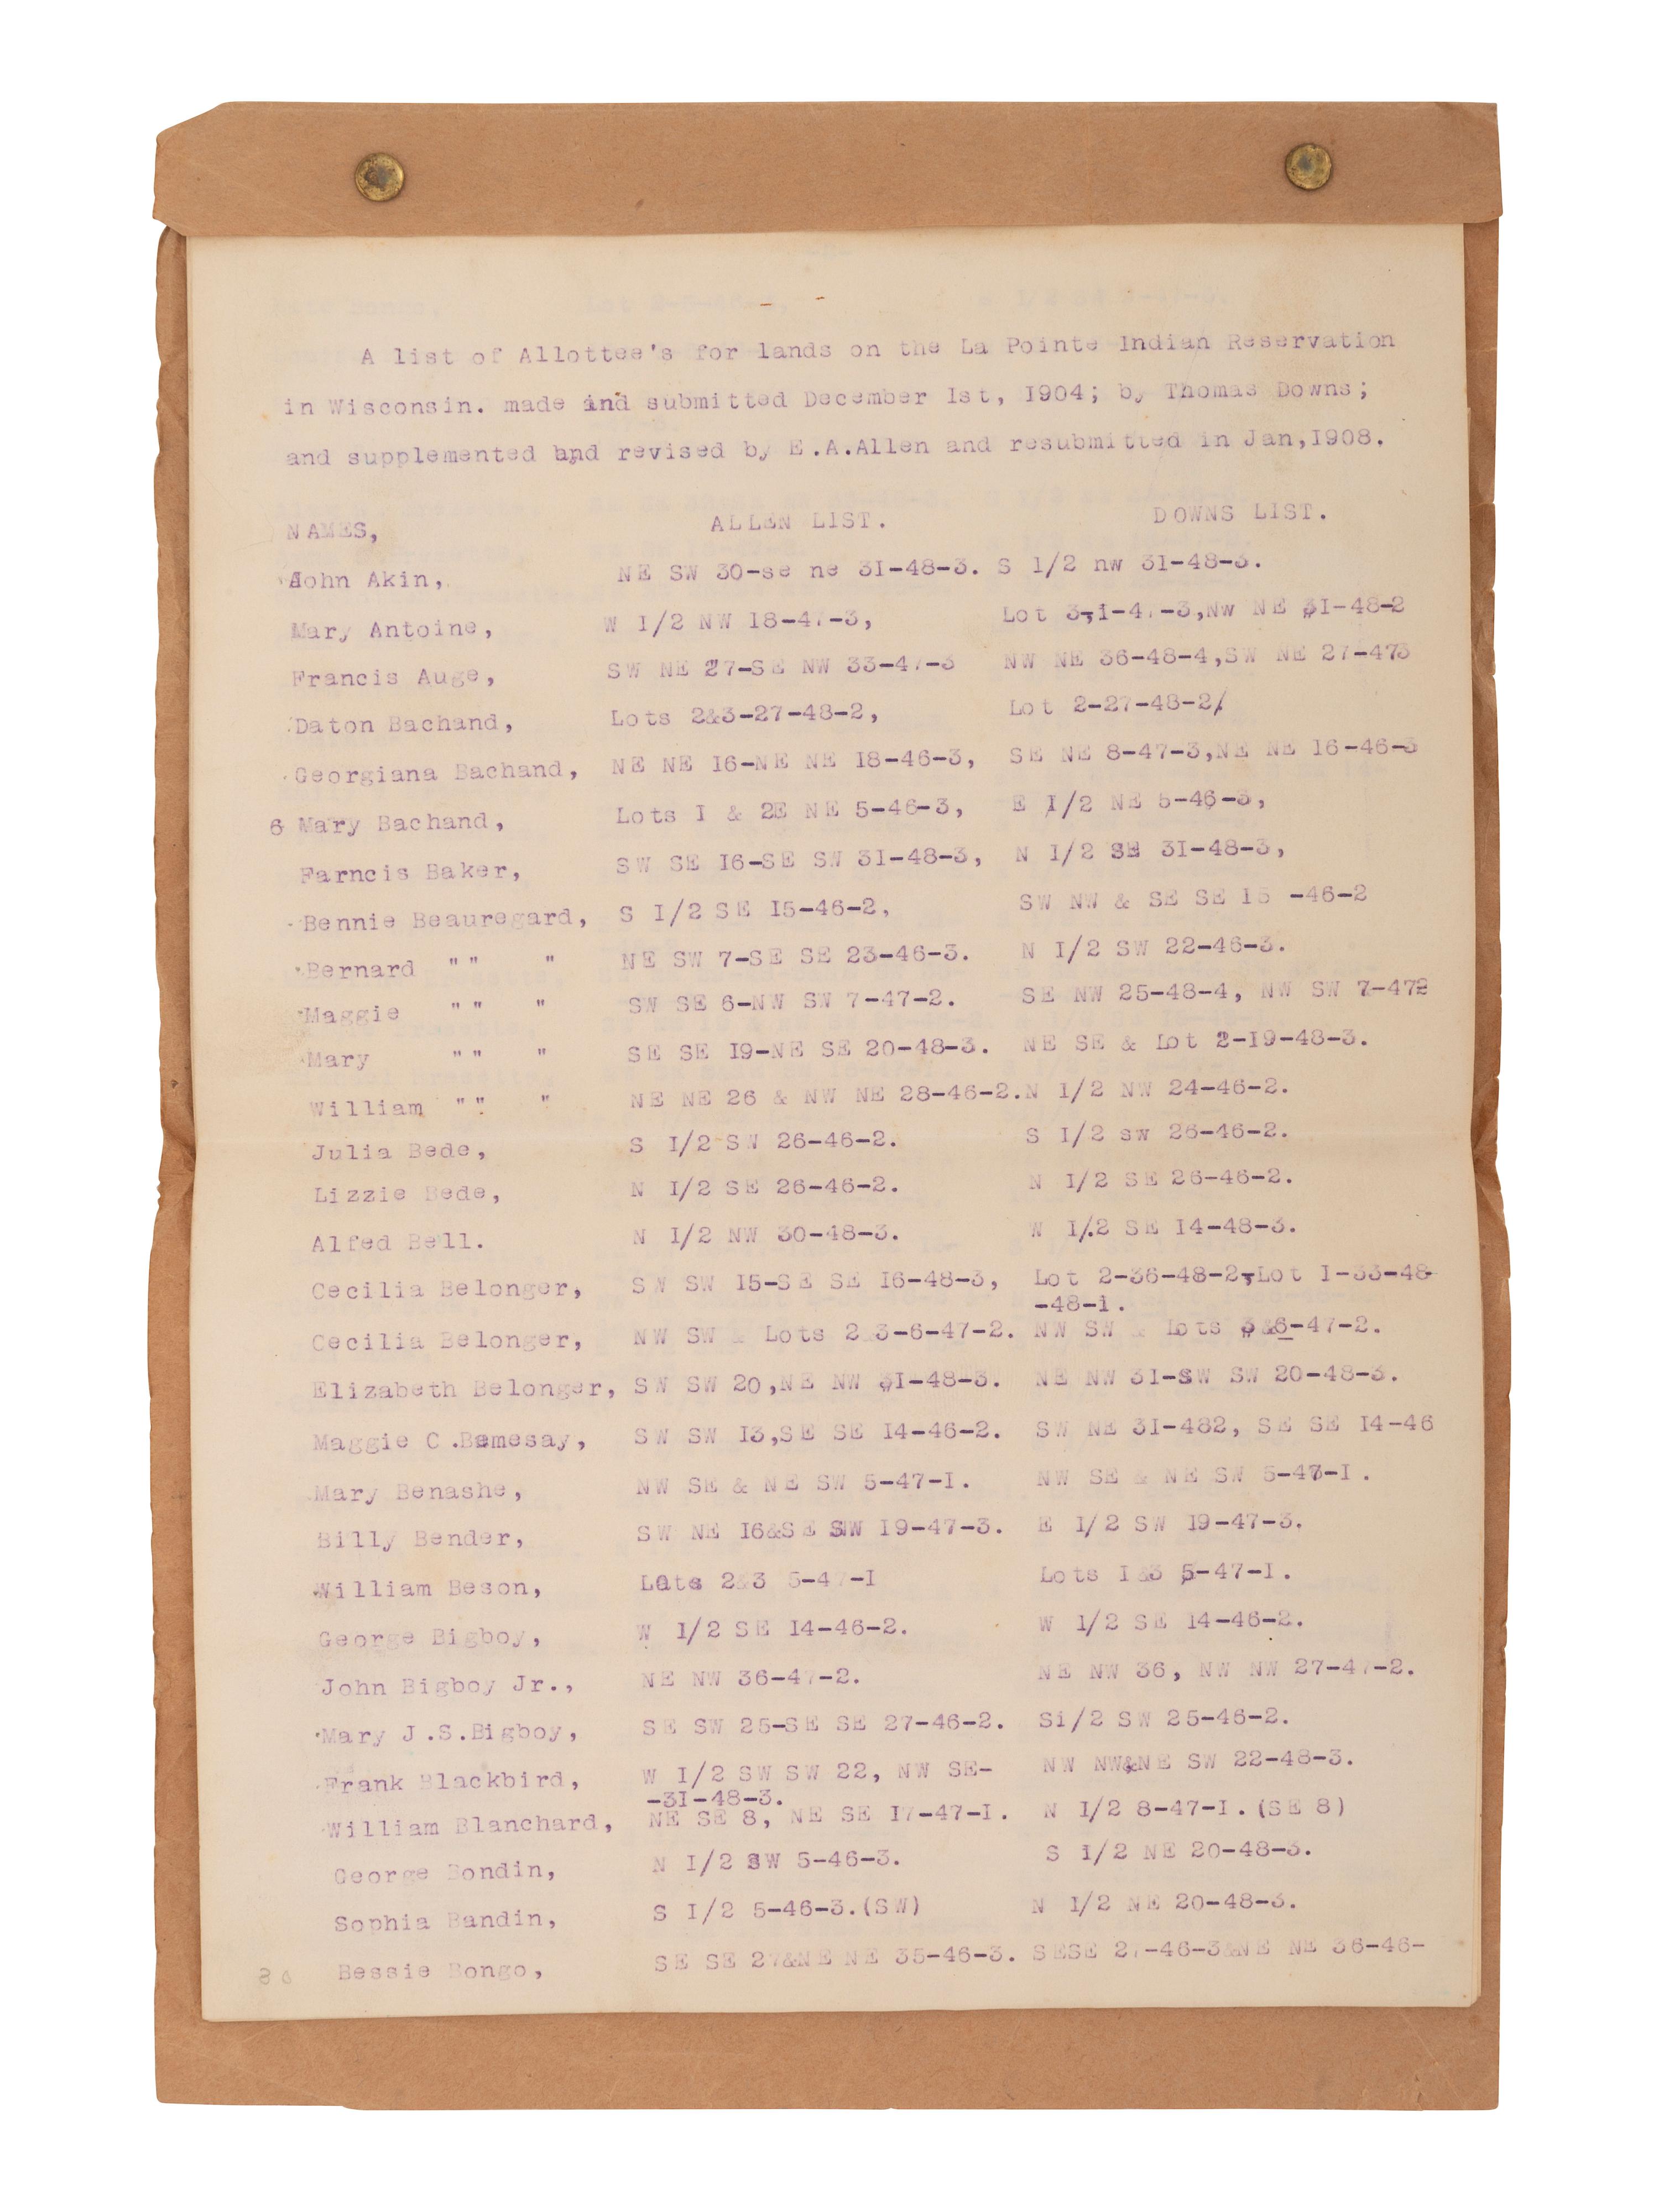 A list of Allottee's for lands on the La Pointe Indian Reservation
in Wisconsin. made and submitted December 1st, 1904; by Thomas Downs;
and supplemented and revised by E.A.Allen and resubmitted in Jan,1908.
NAMES, ALLEN LIST. DOWNS LIST.
John Akin, NE SW 30-se ne 31-48-3. S 1/2 nw 31-48-3.
Mary Antoine, W 1/2 NW 18-47-3, Lot 3-1-47-3,Nw NE 31-48-2
Francis Auge, SW NE 27-SE NW 33-47-3 NW NE 36-48-4,SW NE 27-473
Daton Bachand, Lots 2&3-27-48-2, Lot 2-27-48-2/
Georgiana Bachand, NE NE 16-NE NE 18-46-3, SE NE 8-47-3,NE NE 16-46-3
6 Mary Bachand, Lots I & 2E NE 5-46-3, E 1/2 NE 5-46-3,
Farncis Baker, SW SE 16-SE SW 31-48-3, N 1/2 SE 31-48-3,
Bennie Beauregard, S 1/2 SE 15-46-2, SW NW & SE SE 15 -46-2
Bernard "" " NE SW 7-SE SE 23-46-3. N 1/2 SW 22-46-3.
Maggie "" " SW SE 6-NW SW 7-47-2. SE NW 25-48-4, NW SW 7-472
Mary "" " SE SE 19-NE SE 20-48-3. NE SE & Lot 2-19-48-3.
William "" " NE NE 26 & NW NE 28-46-2. N 1/2 NW 24-46-2.
Julia Bede, S 1/2 SW 26-46-2. S 1/2 sw 26-46-2.
Lizzie Bede, N 1/2 SE 26-46-2. N 1/2 SE 26-46-2.
Alfed Bell. N 1/2 NW 30-48-3. W 1/.2 SE 14-48-3.
Cecilia Belonger, SW SW 15-SE SE 16-48-3, Lot 2-36-48-2,Lot 1-33-48
-48-1.
Cecilia Belonger, NW SW & Lots 2&3-6-47-2. NW SW & Lots 3&6-47-2.
Elizabeth Belonger, SW SW 20,NE NW 31-48-3. NE NW 31-SW SW 20-48-3.
Maggie C.Bemesay, SW SW 13,SE SE 14-46-2. SW NE 31-482, SE SE 14-46
Mary Benashe, NW SE & NE SW 5-47-1. NW SE & NE SW 5-47-1.
Billy Bender, SW NE 16&SE NW 19-47-3. E 1/2 SW 19-47-3.
William Beson, Lots 2&3 5-47-1 Lots I&3 5-47-1.
George Bigboy, W 1/2 SE 14-46-2. W 1/2 SE 14-46-2.
John Bigboy Jr., NE NW 36-47-2. NE NW 36, NW NW 27-47-2.
Mary J.S.Bigboy, SE SW 25-SE SE 27-46-2. S1/2 SW 25-46-2.
Frank Blackbird, W 1/2 SW SW 22, NW SE- NW NW&NE SW 22-48-3.
-31-48-3.
William Blanchard, NE SE 8, NE SE 17-47-1. N 1/2 8-47-1.(SE 8)
George Bondin, N 1/2 SW 5-46-3. S 1/2 NE 20-48-3.
Sophia Bandin, S 1/2 5-46-3.(SW) N 1/2 NE 20-48-3.
30 Bessie Bongo, SE SE 27&NE NE 35-46-3. SESE 27-46-3&NE NE 36-46-